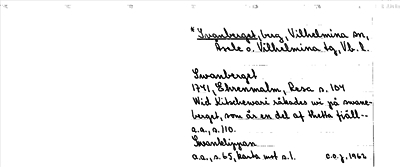 * Svanberget, berg, Vilhelmina sn,
Åsele o. Vilhelmina tg, Vb. l.
Swanberget
1741, Ehrenmalm, Resa s. 104
Wid Kitsckewari råkades wi på swane-
berget, som är en del af thetta fjäll--
a.a., s. 110.
Swanklippan
a.a., s. 65, karta mot s. 1. C.O.J. 1962